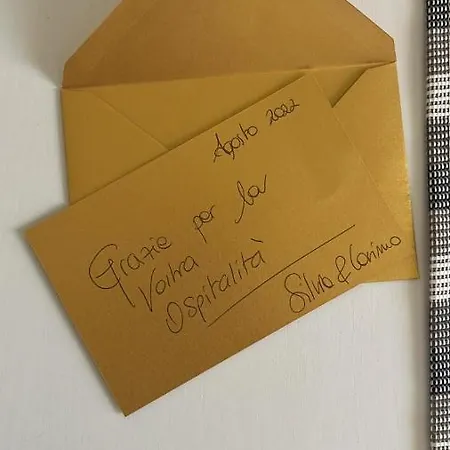 Agosto 2022
Grazie per la
Vostra
Ospitalità
Silvia &